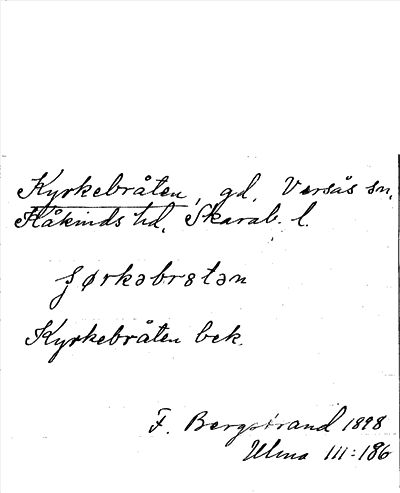 Kyrkebråten, gd, Versås sn,
Kåkinds hd, Skarab. l.
ʃørkəbr8tən
Kyrkebråten bek.
F. Bergstrand 1898
Ulma III:186